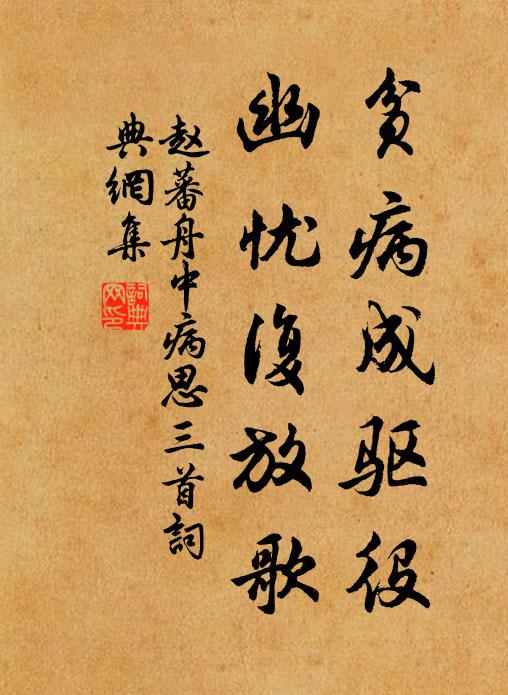 贫病成驱役
幽忧復放歌
赵蕃舟中病思三首詞
典網集
詞典网印